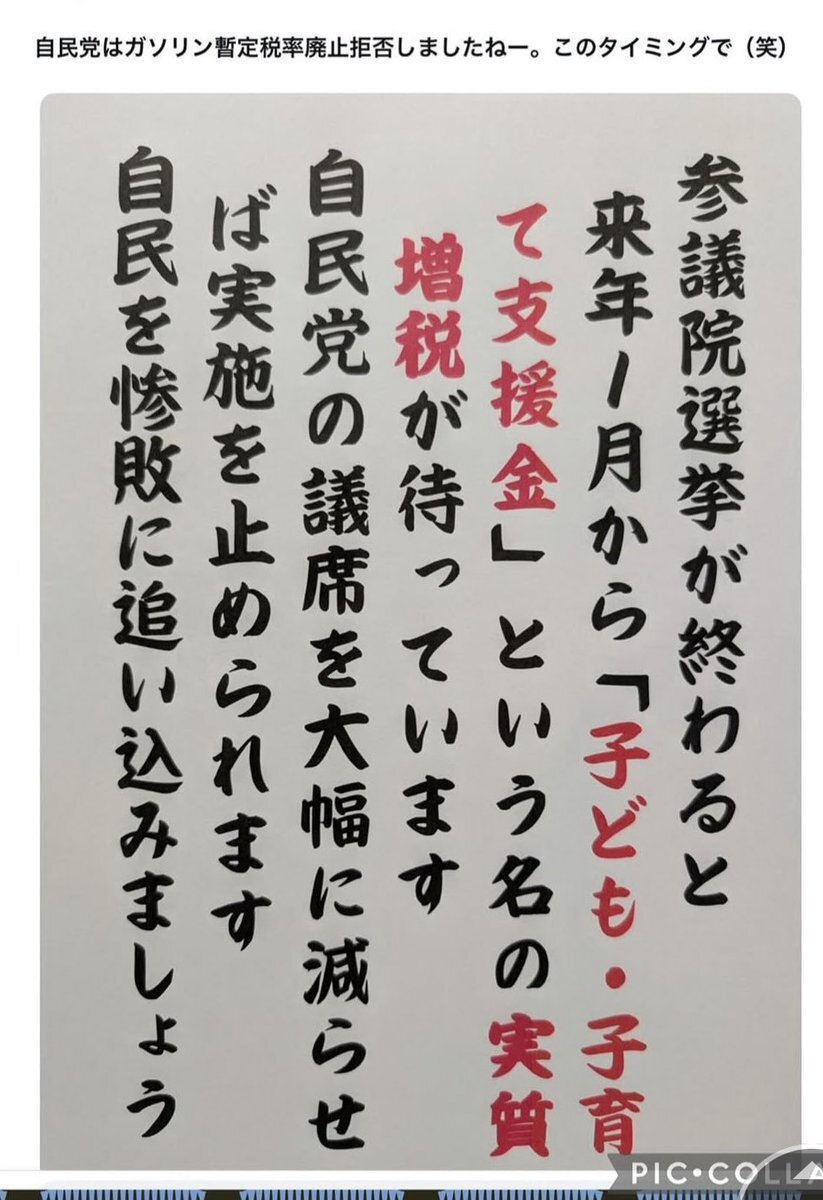 自民党はガソリン暫定税率廃止拒否しましたねー。このタイミングで（笑）
参議院選挙が終わると
来年1月から「子ども・子育
て支援金」という名の実質
増税が待っています
自民党の議席を大幅に減らせ
ば実施を止められます
自民を惨敗に追い込みましょう